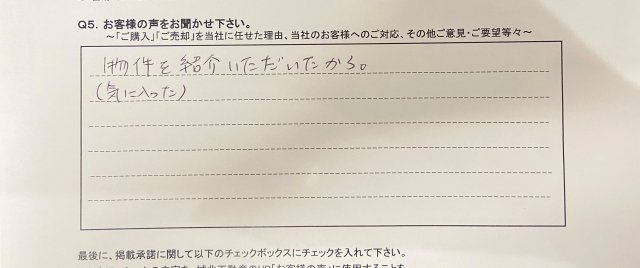 Q5. お客様の声をお聞かせ下さい。
～「ご購入」「ご売却」を当社に任せた理由、当社のお客様へのご対応、その他ご意見・ご要望等々～
物件を紹介いただいたから。
(気に入った)
最後に、掲載承諾に関して以下のチェックボックスにチェックを入れて下さい。